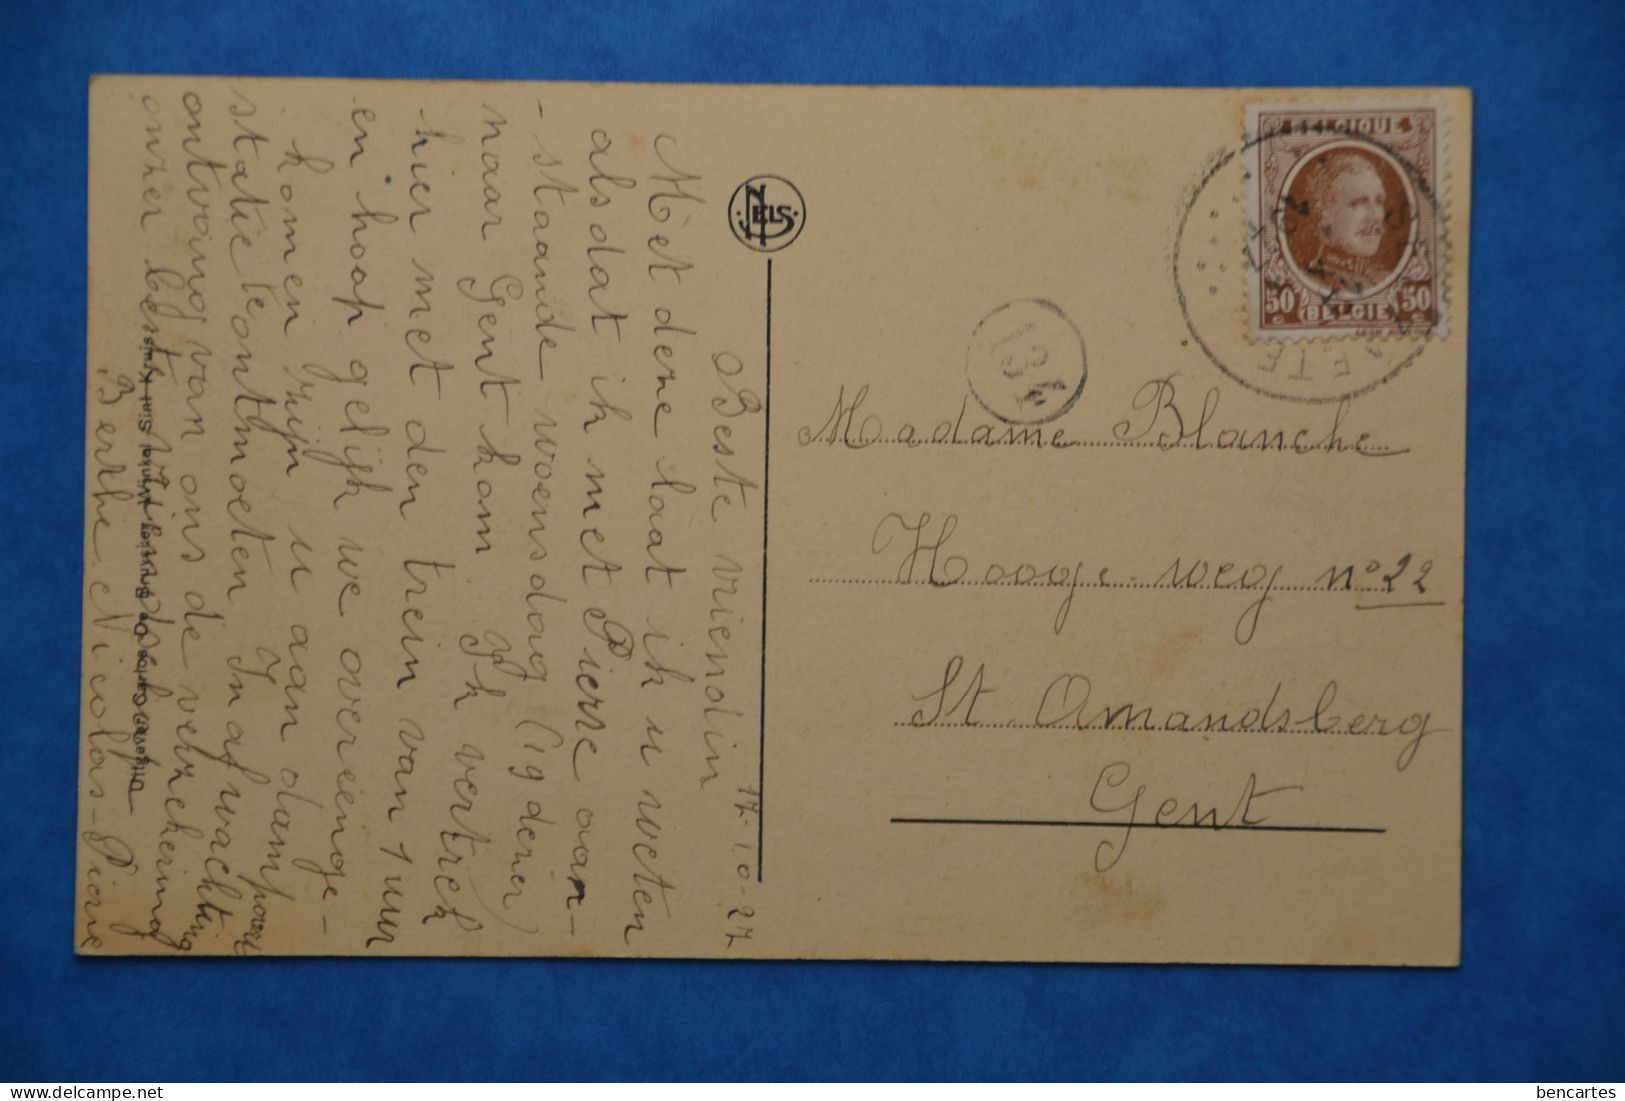 17-10-27
Beste vriendin
Met deze laat ik u weten
alsdat ik met Pierre aan-
-staande woensdag (19 dezer)
naar Gent kom Ik vertrek
hier met den trein van 1 uur
en hoop gelijk we overeenge-
komen zijn u aan dampoort
statie te ontmoeten In afwachting
ontvang van ons de verzekering
onzer beste vriendschap
Berthe-Nicolas-Pierre
NELS
BELGIQUE
50 50
BELGIË
134
Madame Blanche
Hooge-weg n° 22
St. Amandsberg
Gent
bencartes